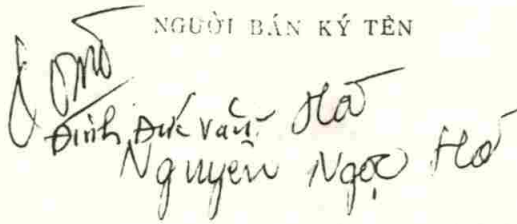 NGƯỜI BÁN KÝ TÊN
Đinh Đức Văn Hà
Nguyên Ngọc Hà